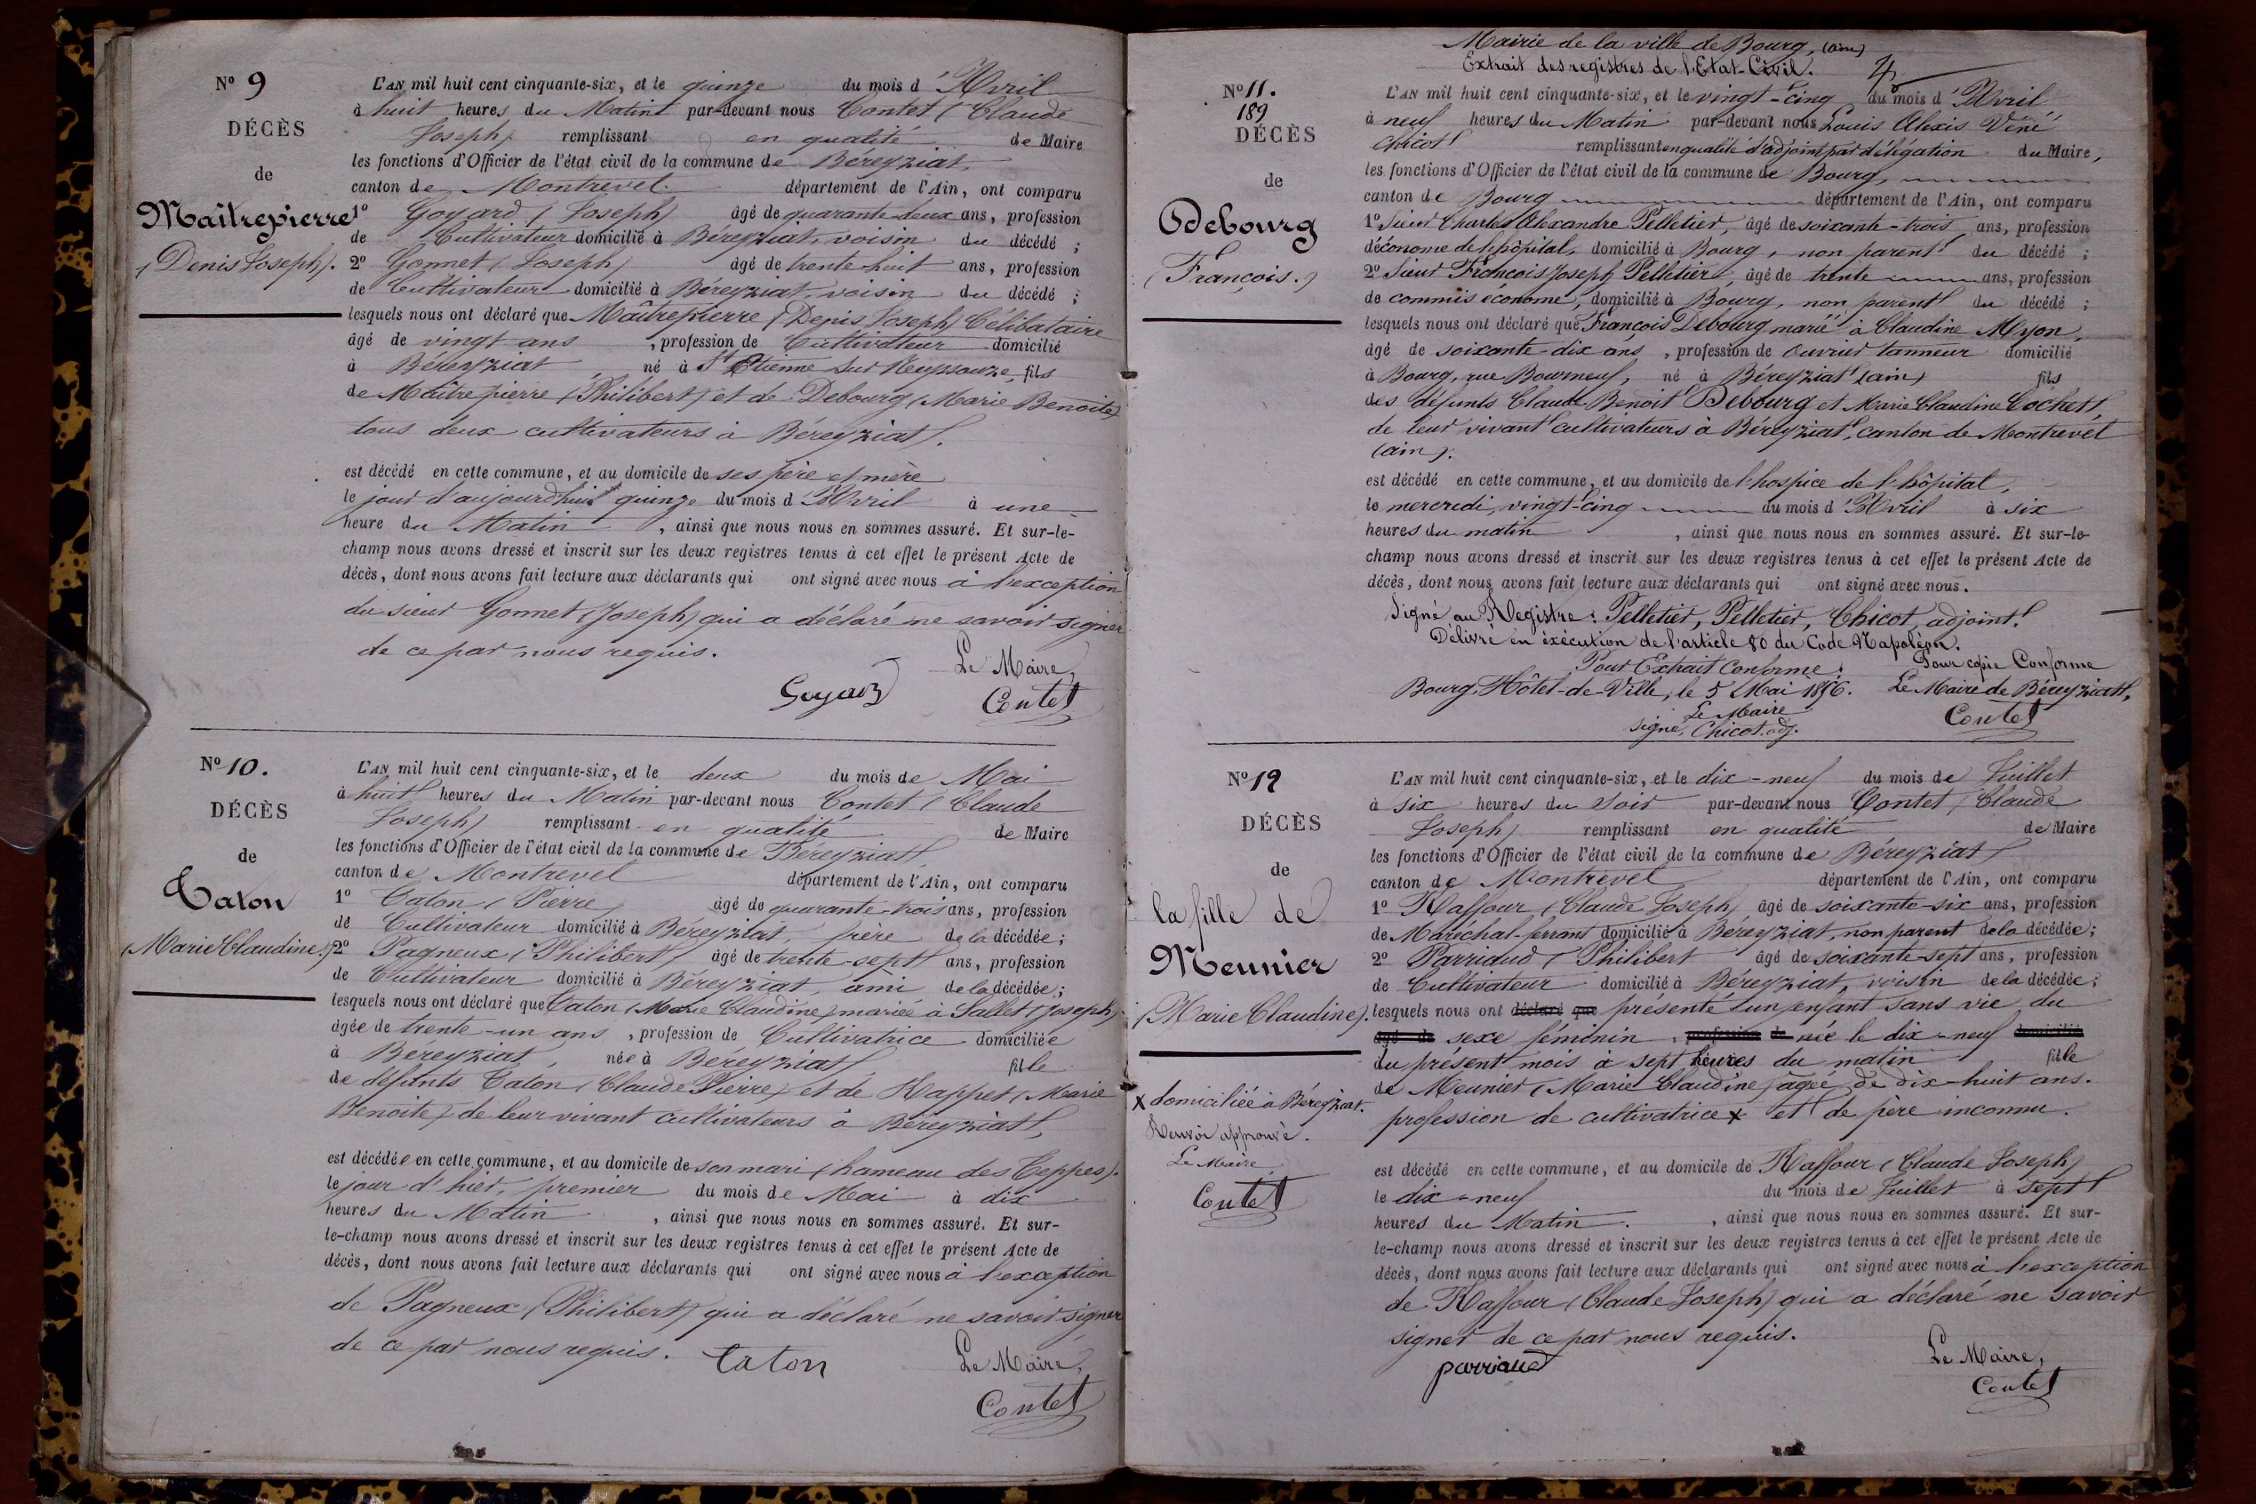 N° 9
DÉCÈS
de
Maîtrepierre
(Denis Joseph).
L'AN mil huit cent cinquante-six, et le quinze du mois d'Avril
à huit heures du Matin par-devant nous Contet (Claude
Joseph) remplissant en qualité de Maire
les fonctions d'Officier de l'état civil de la commune de Béreyziat,
canton de Montrevel département de l'Ain, ont comparu
1° Goyard (Joseph) âgé de quarante-deux ans, profession
de Cultivateur domicilié à Béreyziat, voisin du décédé ;
2° Gonnet (Joseph) âgé de trente-huit ans, profession
de Cultivateur domicilié à Béreyziat, voisin du décédé ;
lesquels nous ont déclaré que Maîtrepierre (Denis Joseph) Célibataire
âgé de vingt ans , profession de Cultivateur domicilié
à Béreyziat né à St Etienne sur Reyssouze, fils
de Maîtrepierre (Philibert) et de Debourg (Marie Benoite)
tous deux cultivateurs à Béreyziat.
est décédé en cette commune, et au domicile de ses père et mère
le jour d'aujourd'hui quinze du mois d'Avril à une
heure du Matin , ainsi que nous nous en sommes assuré. Et sur-le-
champ nous avons dressé et inscrit sur les deux registres tenus à cet effet le présent Acte de
décès, dont nous avons fait lecture aux déclarants qui ont signé avec nous à l'exception
du sieur Gonnet (Joseph) qui a déclaré ne savoir signer
de ce par nous requis.
Le Maire,
Goyard Contet
N° 10.
DÉCÈS
de
Caton
(Marie Claudine.)
L'AN mil huit cent cinquante-six, et le deux du mois de Mai
à huit heures du Matin par-devant nous Contet (Claude
Joseph) remplissant en qualité de Maire
les fonctions d'Officier de l'état civil de la commune de Béreyziat
canton de Montrevel département de l'Ain, ont comparu
1° Caton (Pierre) âgé de quarante-trois ans, profession
de Cultivateur domicilié à Béreyziat, frère de la décédée ;
2° Pagneux (Philibert) âgé de trente-sept ans, profession
de Cultivateur domicilié à Béreyziat, ami de la décédée ;
lesquels nous ont déclaré que Caton (Marie Claudine) mariée à Sallet (Joseph)
âgée de trente-un ans , profession de Cultivatrice domiciliée
à Béreyziat, née à Béreyziat fille
de défunts Caton (Claude Pierre) et de Rappet (Marie
Benoite) de leur vivant cultivateurs à Béreyziat,
est décédée en cette commune, et au domicile de son mari (hameau des Teppes).
le jour d'hier, premier du mois de Mai à dix
heures du Matin , ainsi que nous nous en sommes assuré. Et sur-
le-champ nous avons dressé et inscrit sur les deux registres tenus à cet effet le présent Acte de
décès, dont nous avons fait lecture aux déclarants qui ont signé avec nous à l'exception
de Pagneux (Philibert) qui a déclaré ne savoir signer
de ce par nous requis.
Caton Le Maire,
Contet
Mairie de la ville de Bourg, (ain)
Extrait des registres de l'Etat-Civil.
4
N° 11.
189
DÉCÈS
de
Debourg
(François.)
L'AN mil huit cent cinquante-six, et le vingt-cinq du mois d'Avril
à neuf heures du Matin par-devant nous Louis Alexis Véné
Chicot remplissant en qualité d'adjoint par délégation du Maire,
les fonctions d'Officier de l'état civil de la commune de Bourg,
canton de Bourg département de l'Ain, ont comparu
1° Sieur Charles Alexandre Pelletier, âgé de soixante-trois ans, profession
d'économe de l'hôpital, domicilié à Bourg, non parent du décédé ;
2° Sieur François Joseph Pelletier, âgé de trente ans, profession
de commis économe, domicilié à Bourg, non parent du décédé ;
lesquels nous ont déclaré que François Debourg marié à Claudine Myon,
âgé de soixante-dix ans , profession de ouvrier tanneur domicilié
à Bourg, rue Bourneuf, né à Béreyziat (ain) fils
des défunts Claude Benoit Debourg et Marie Claudine Cochet,
de leur vivant cultivateurs à Béreyziat, canton de Montrevel
(ain).
est décédé en cette commune, et au domicile de l'hospice de l'hôpital,
le mercredi, vingt-cinq du mois d'Avril à six
heures du matin , ainsi que nous nous en sommes assuré. Et sur-le-
champ nous avons dressé et inscrit sur les deux registres tenus à cet effet le présent Acte de
décès, dont nous avons fait lecture aux déclarants qui ont signé avec nous.
Signé au Registre : Pelletier, Pelletier, Chicot, adjoint.
Délivré en éxécution de l'article 80 du Code Napoléon.
Pour Extrait Conforme : Pour copie Conforme
Bourg, Hôtel-de-Ville, le 5 Mai 1856. Le Maire de Béreyziat,
Le Maire Contet
signé, Chicot, adj.
N° 12
DÉCÈS
de
la fille de
Meunier
(Marie Claudine).
x domiciliée à Béreyziat.
Renvoi approuvé.
Le Maire
Contet
L'AN mil huit cent cinquante-six, et le dix-neuf du mois de Juillet
à six heures du soir par-devant nous Contet (Claude
Joseph) remplissant en qualité de Maire
les fonctions d'Officier de l'état civil de la commune de Béreyziat
canton de Montrevel département de l'Ain, ont comparu
1° Raffour (Claude Joseph) âgé de soixante-six ans, profession
de Maréchal-ferrant domicilié à Béreyziat, non parent de la décédée ;
2° Parriaud (Philibert âgé de soixante-sept ans, profession
de Cultivateur domicilié à Béreyziat, voisin de la décédée ;
lesquels nous ont déclaré que présenté un enfant sans vie du
âgé de sexe féminin, profession de née le dix-neuf domicilié
du présent mois à sept heures du matin fille
de Meunier (Marie Claudine) agée de dix-huit ans.
profession de cultivatrice x et de père inconnu.
est décédé en cette commune, et au domicile de Raffour (Claude Joseph)
le dix-neuf du mois de Juillet à sept
heures du Matin. , ainsi que nous nous en sommes assuré. Et sur-
le-champ nous avons dressé et inscrit sur les deux registres tenus à cet effet le présent Acte de
décès, dont nous avons fait lecture aux déclarants qui ont signé avec nous à l'exception
de Raffour (Claude Joseph) qui a déclaré ne savoir
signer de ce par nous requis.
parriaud Le Maire,
Contet